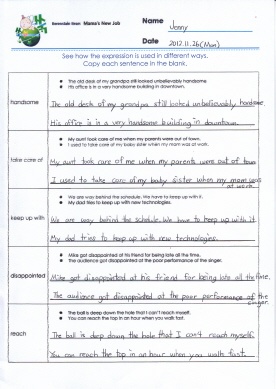 Berenstain Bears Mama's New Job
Name Jenny
Date 2012.11.26(Mon)
See how the expression is used in different ways.
Copy each sentence in the blank.
handsome
● The old desk of my grandpa still looked unbelievably handsome
● His office is in a very handsome building in downtown.
The old desk of my grandpa still looked unbelievably handsome.
His office is in a very handsome building in downtown.
take care of
● My aunt took care of me when my parents were out of town.
● I used to take care of my baby sister when my mam was at work.
My aunt took care of me when my parents were out of town
I used to take care of my baby sister when my mam was
at work.
keep up with
● We are way behind the schedule. We have to keep up with it.
● My dad tries to keep up with new technologies.
We are way behind the schedule. We have to keep up with it.
My dad tries to keep up with new technologies.
disappointed
● Mike got disappointed at his friend for being late all the time.
● The audience got disappointed at the poor performance of the singer.
Mike got disappointed at his friend for being late all the time.
The audience got disappointed at the poor performance of the
singer.
reach
● The ball is deep down the hole that I can't reach myself.
● You can reach the top in an hour when you walk fast.
The ball is deep down the hole that I can't reach myself.
You can reach the top in an hour when you walk fast.